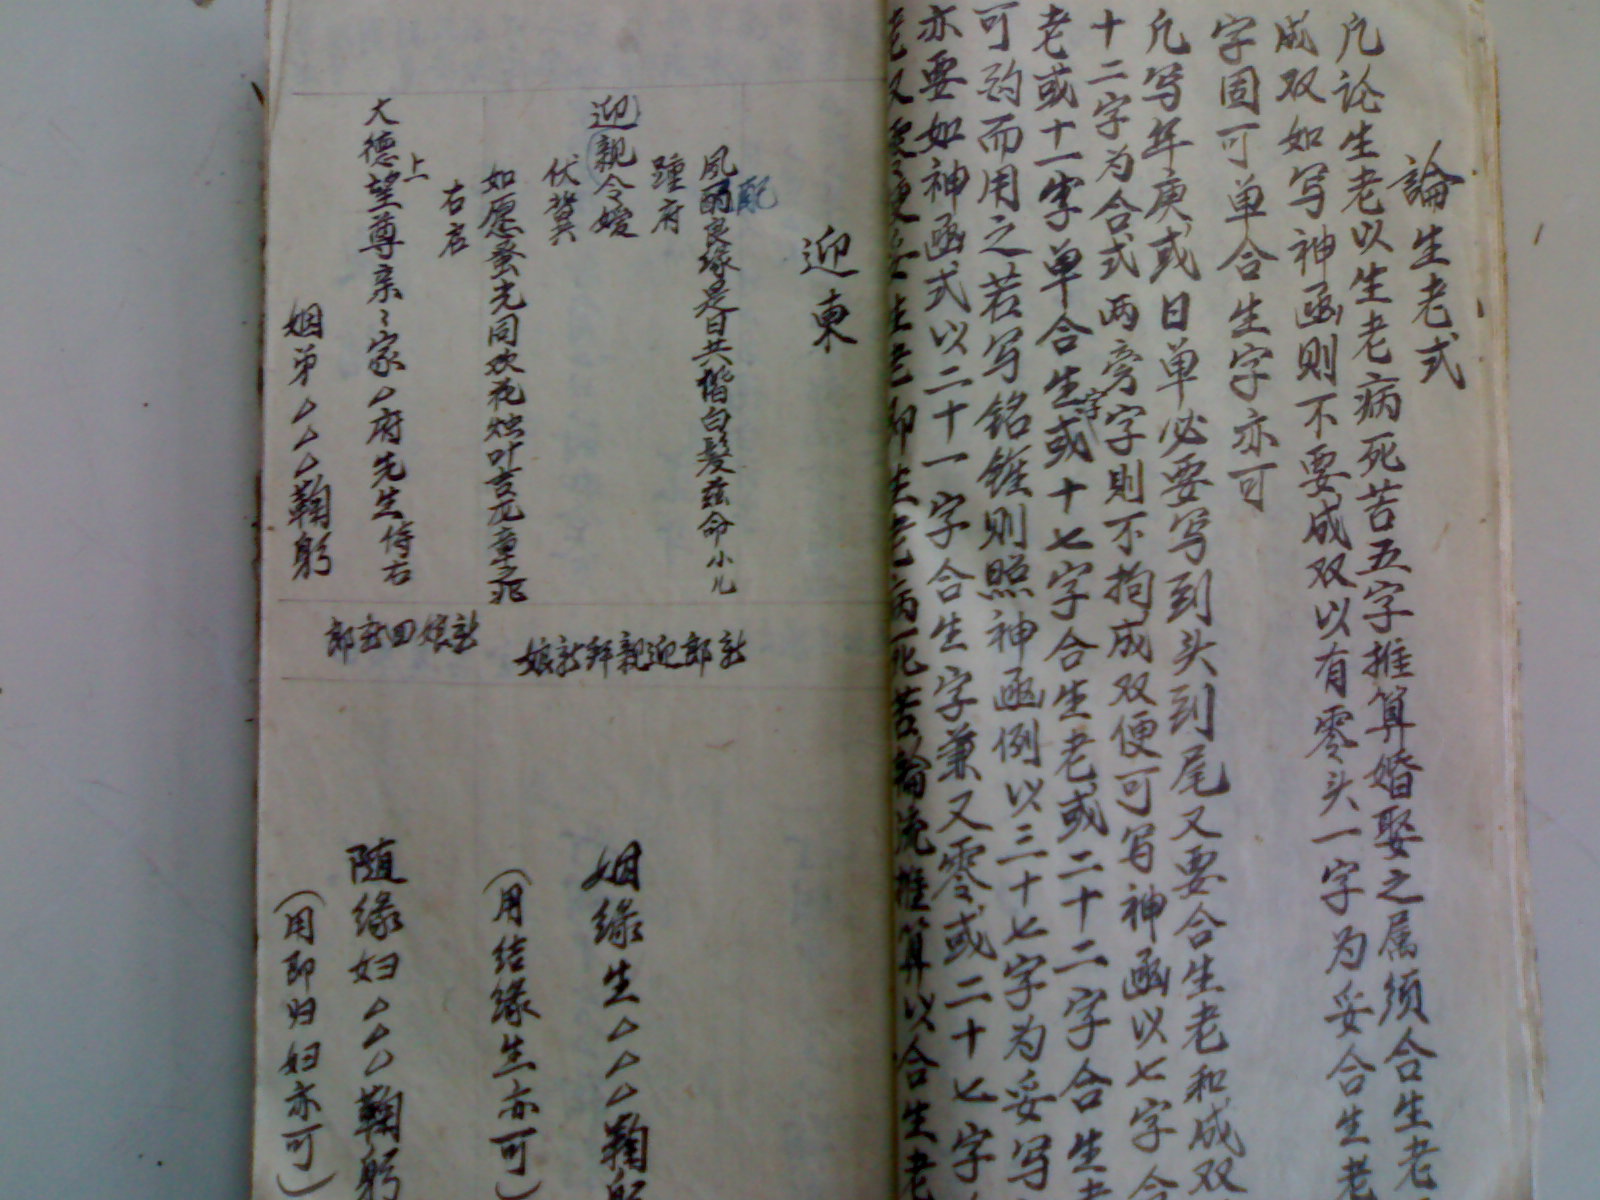 論生老式
凡论生老以生老病死苦五字推算婚娶之属须合生老
成双如写神函则不要成双以有零头一字为妥合生老
字固可单合生字亦可
凡写年庚或日单必要写到头到尾又要合生老和成双
十二字为合式两旁字則不拘成双便可写神函以七字合
老或十一字单合生字或十七字合生老或二十二字合生老
可韵而用之若写铭旌则照神函例以三十七字为妥写
亦要如神函式以二十一字合生字兼又零或二十七字
老病死苦輪流推算以合生老
迎東
配
凤丽良缘是日共偕白髮兹命小儿
踵府
迎親令嫒
伏冀
如愿蚤光同欢花烛叶吉
右启
上
大德望尊亲〻家△府先生侍右
姻弟△△△鞠躬
新郎迎親拜新娘
新娘回新郎
姻缘生△△△鞠躬
(用结缘生亦可)
随缘妇△△△鞠躬
(用即归妇亦可)